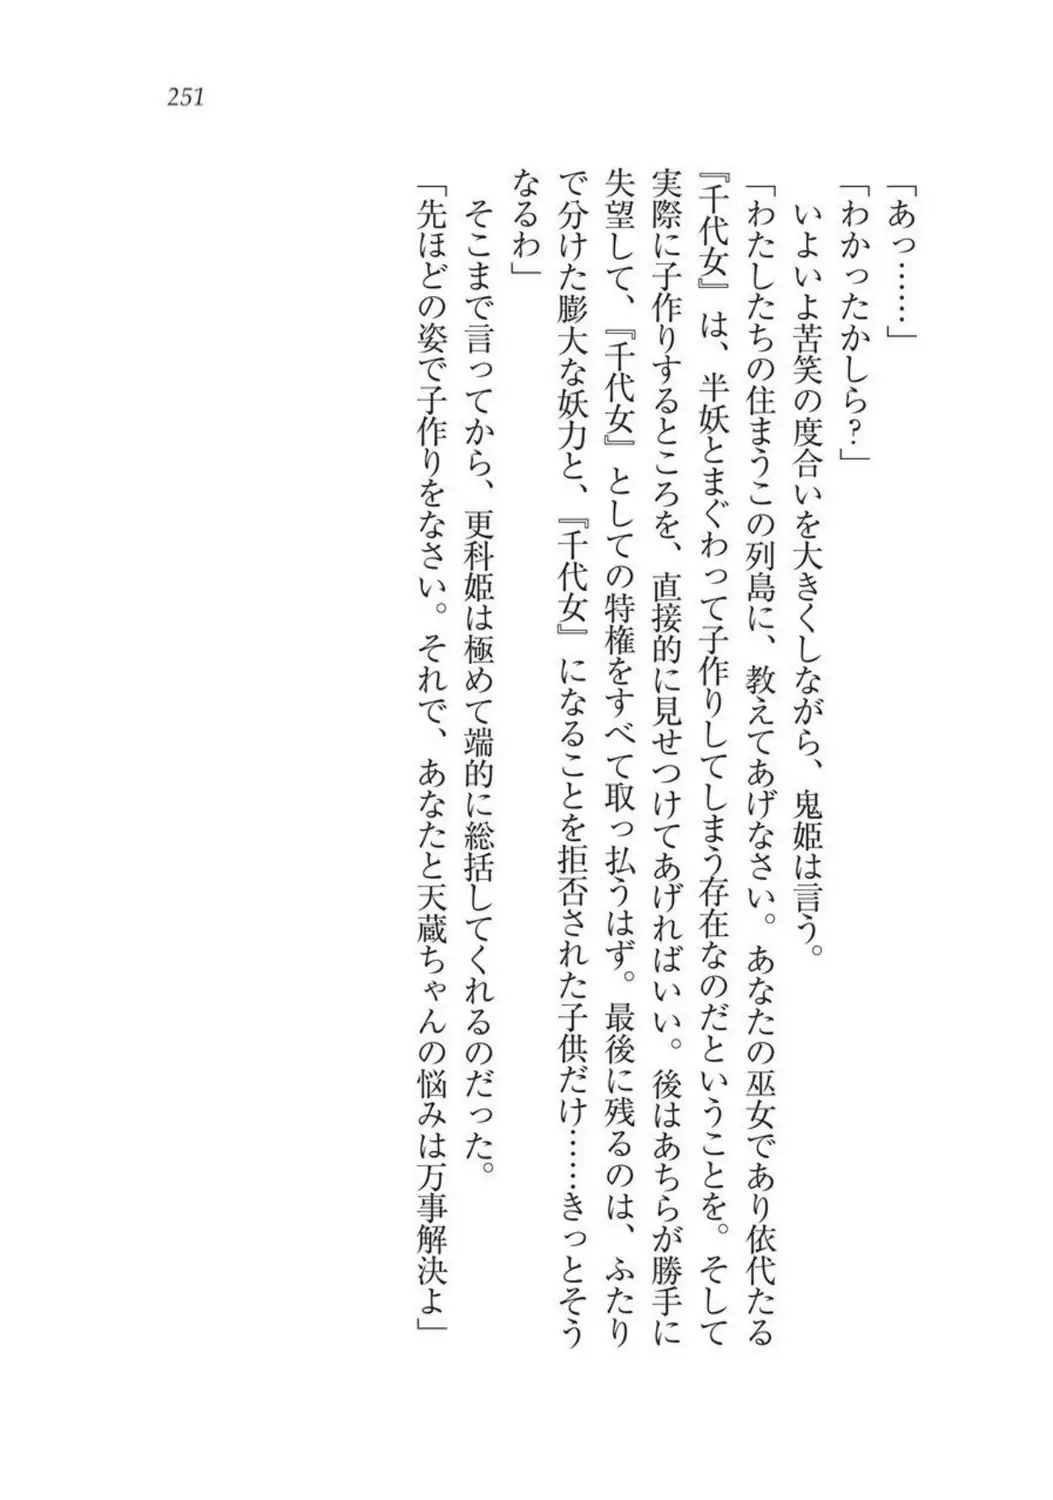 251
「あっ……」
「わかったかしら？」
　いよいよ苦笑の度合いを大きくしながら、鬼姫は言う。
「わたしたちの住まうこの列島に、教えてあげなさい。あなたの巫女であり依代たる
『千代女』は、半妖とまぐわって子作りしてしまう存在なのだということを。そして
実際に子作りするところを、直接的に見せつけてあげればいい。後はあちらが勝手に
失望して、『千代女』としての特権をすべて取っ払うはず。最後に残るのは、ふたり
で分けた膨大な妖力と、『千代女』になることを拒否された子供だけ……きっとそう
なるわ」
　そこまで言ってから、更科姫は極めて端的に総括してくれるのだった。
「先ほどの姿で子作りをなさい。それで、あなたと天蔵ちゃんの悩みは万事解決よ」